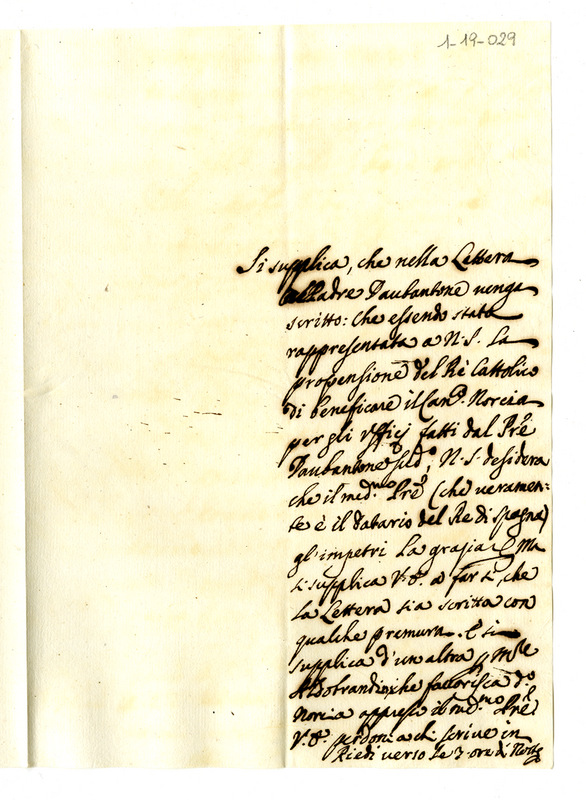 1-19-029
Si supplica, che nella Lettera
al Padre Daubantone venga
scritto: che essendo stata
rappresentata a N. S. La
propensione del Rè Cattolico
di beneficare il Can.º Norcia
per gli Ufficj fatti dal Prē
Daubantone N. S. desidera
che il med.mo Prē (che veramen:
te è il datario del Re di Spagna)
gl'impetri La grazia Ma
si supplica V. E. a far sì, che
La Lettera sia scritta con
qualche premura. E si
supplica d'un altra Mſe
Aldobrandi che favorisca d.º
Norcia appresso il med.mo Prē
V. E. perdoni a chi scrive in
Piedi verso Le 3. ore di Notte